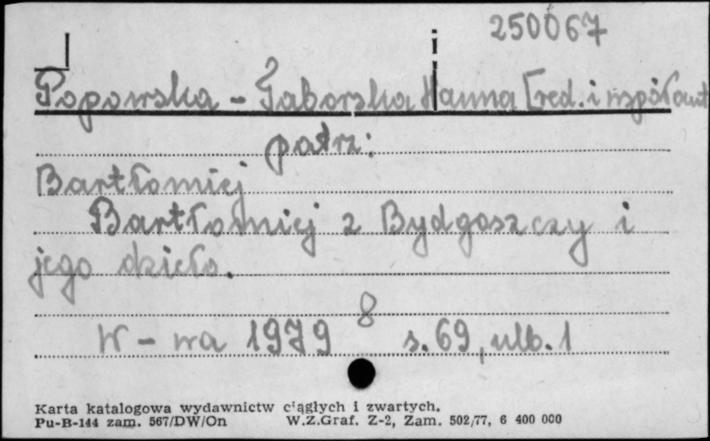 250067
Popowska - Taborska Hanna [red. i współaut
patrz:
Bartłomiej
Bartłomiej z Bydgoszczy i
jego dzieło.
W-wa 1979 8 s. 69, nlb. 1
Karta katalogowa wydawnictw ciągłych i zwartych.
Pu-B-144 zam. 567/DW/On W.Z.Graf. Z-2, Zam. 502/77, 6 400 000